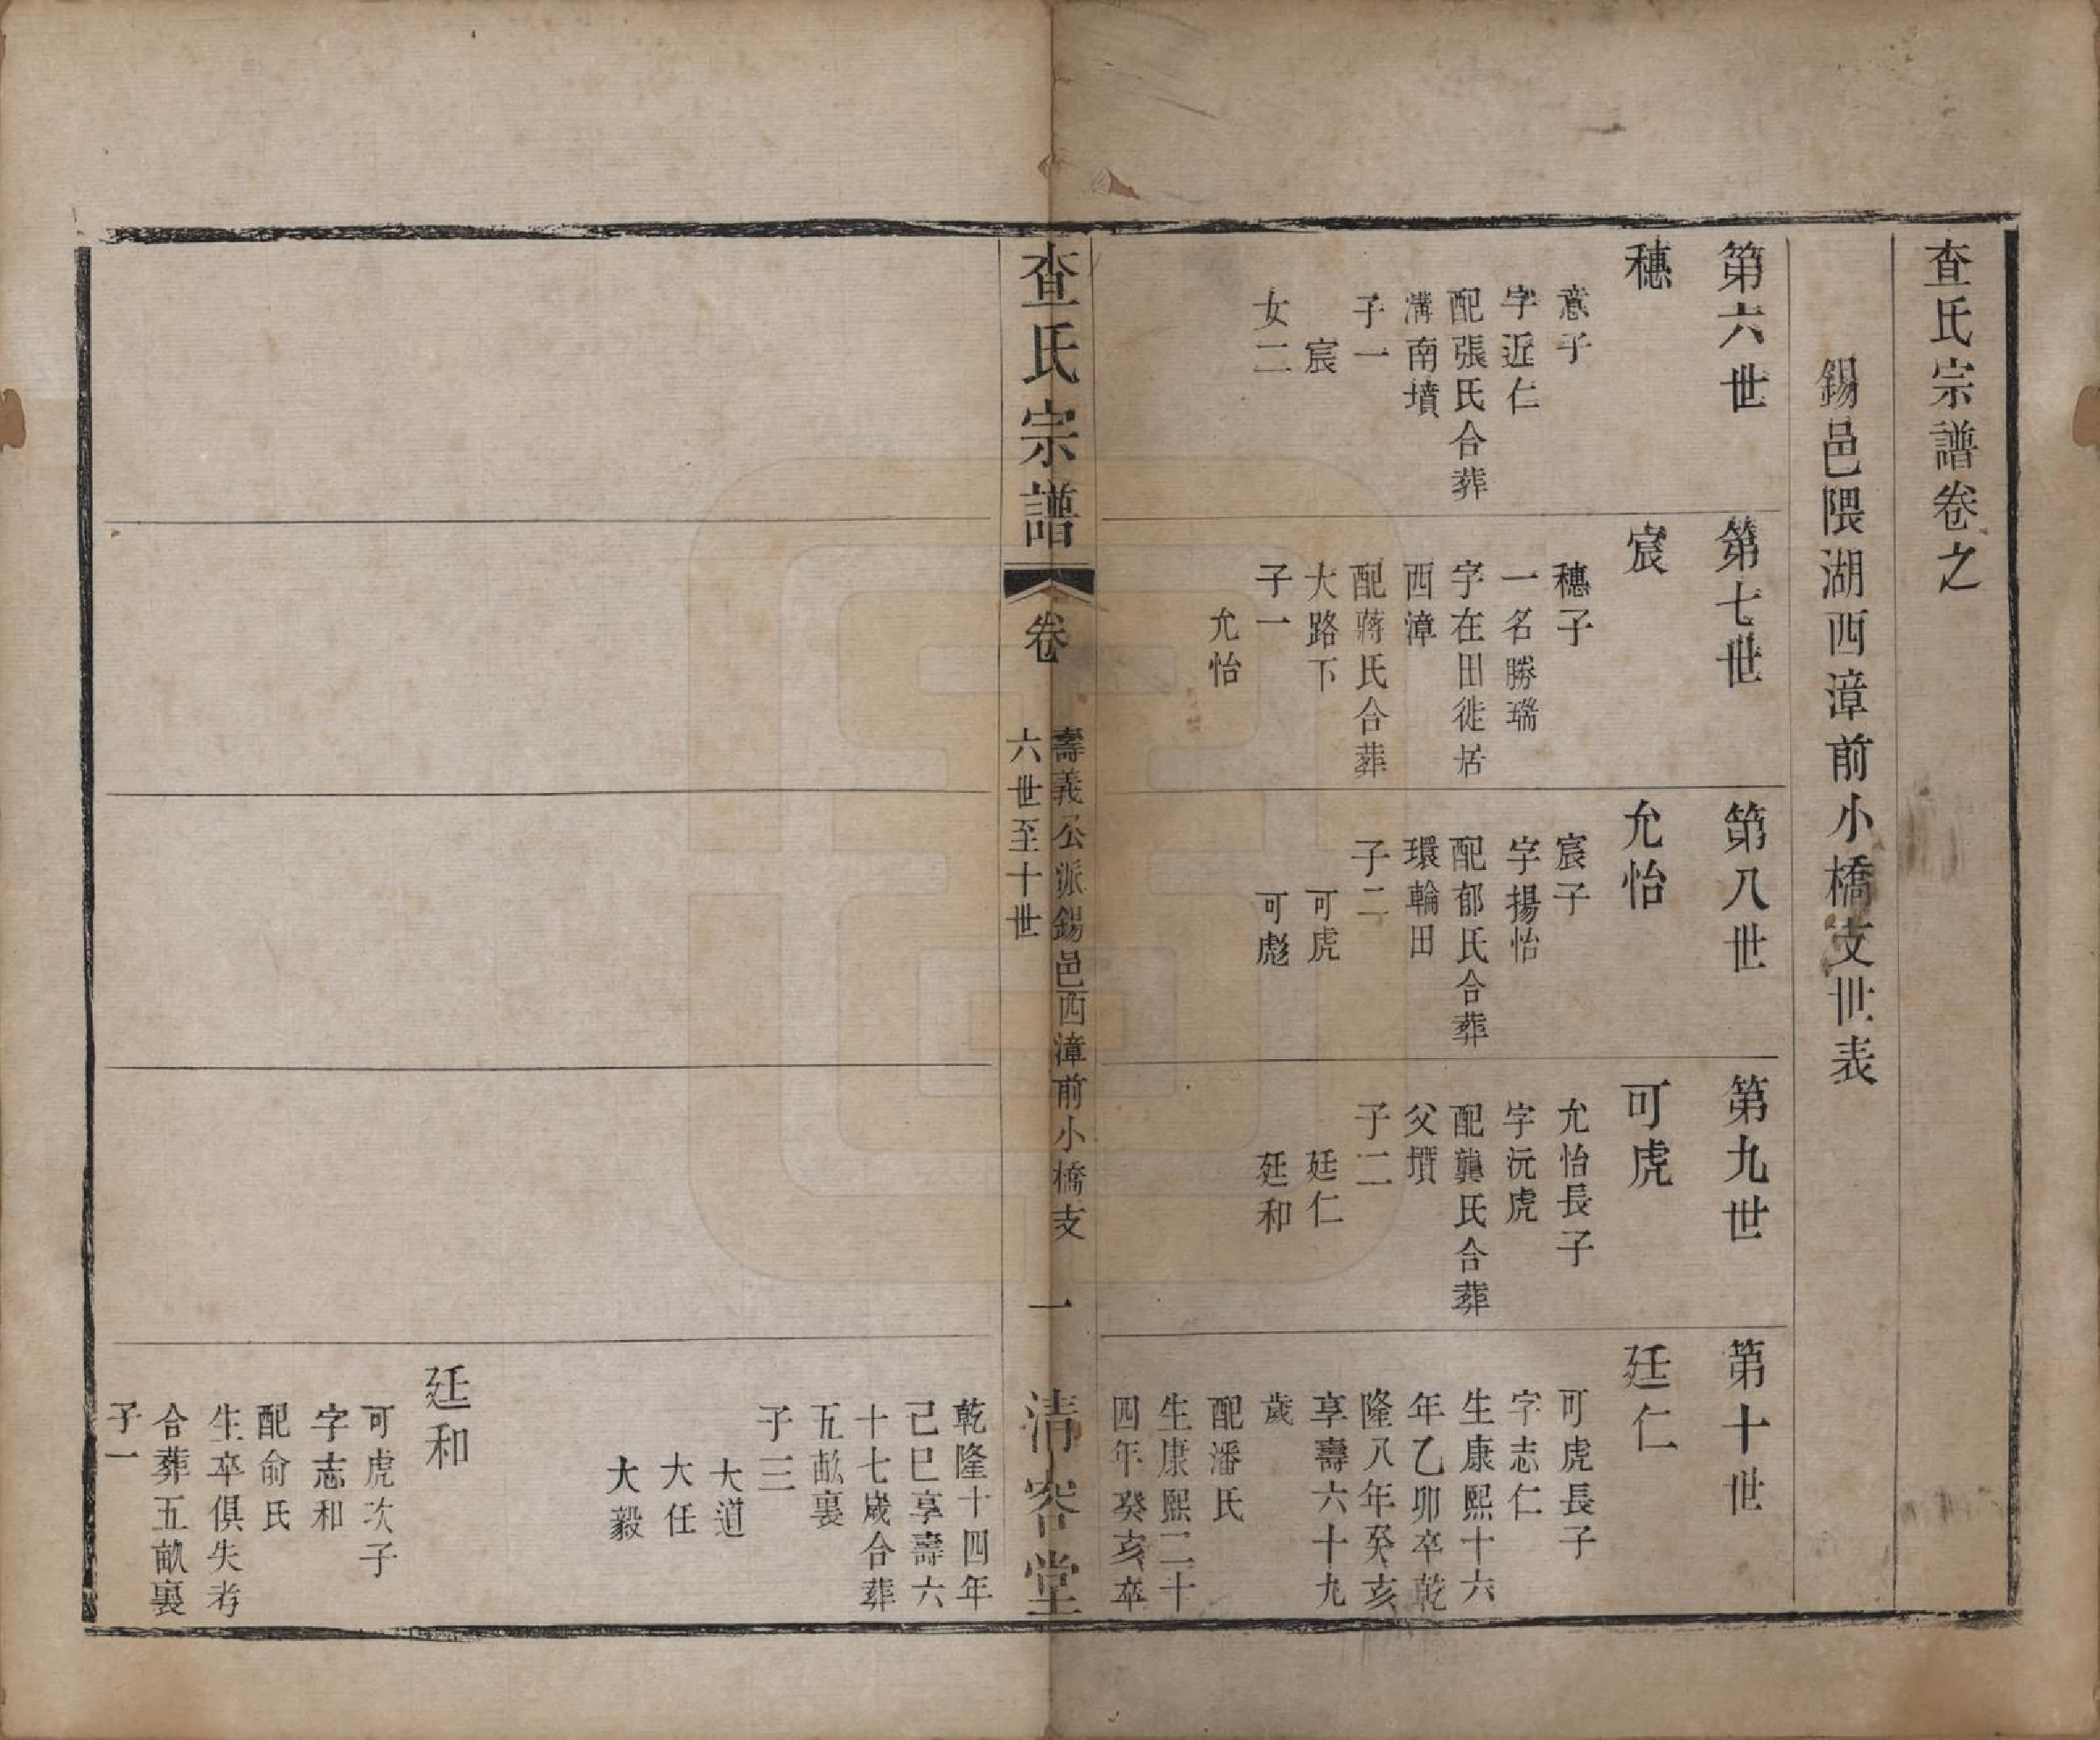 查氏宗譜卷之
錫邑隈湖西漳前小橋支世表
第六世
穗
意子
字近仁
配張氏合葬
溝南墳
子一
宸
女二
第七世
宸
穗子
一名勝瑞
字在田徙居
西漳
配蔣氏合葬
大路下
子一
允怡
第八世
允怡
宸子
字揚怡
配郁氏合葬
環輪田
子二
可虎
可彪
第九世
可虎
允怡長子
字沅虎
配龔氏合葬
父墳
子二
廷仁
廷和
第十世
廷仁
可虎長子
字志仁
生康熙十六
年乙卯卒乾
隆八年癸亥
享壽六十九
歲
配潘氏
生康熙二十
四年癸亥卒
查氏宗譜
卷
壽義公派錫邑西漳前小橋支
六世至十世
一
清容堂
乾隆十四年
己巳享壽六
十七歲合葬
五畝裏
子三
大道
大任
大毅
廷和
可虎次子
字志和
配俞氏
生卒俱失考
合葬五畝裏
子一